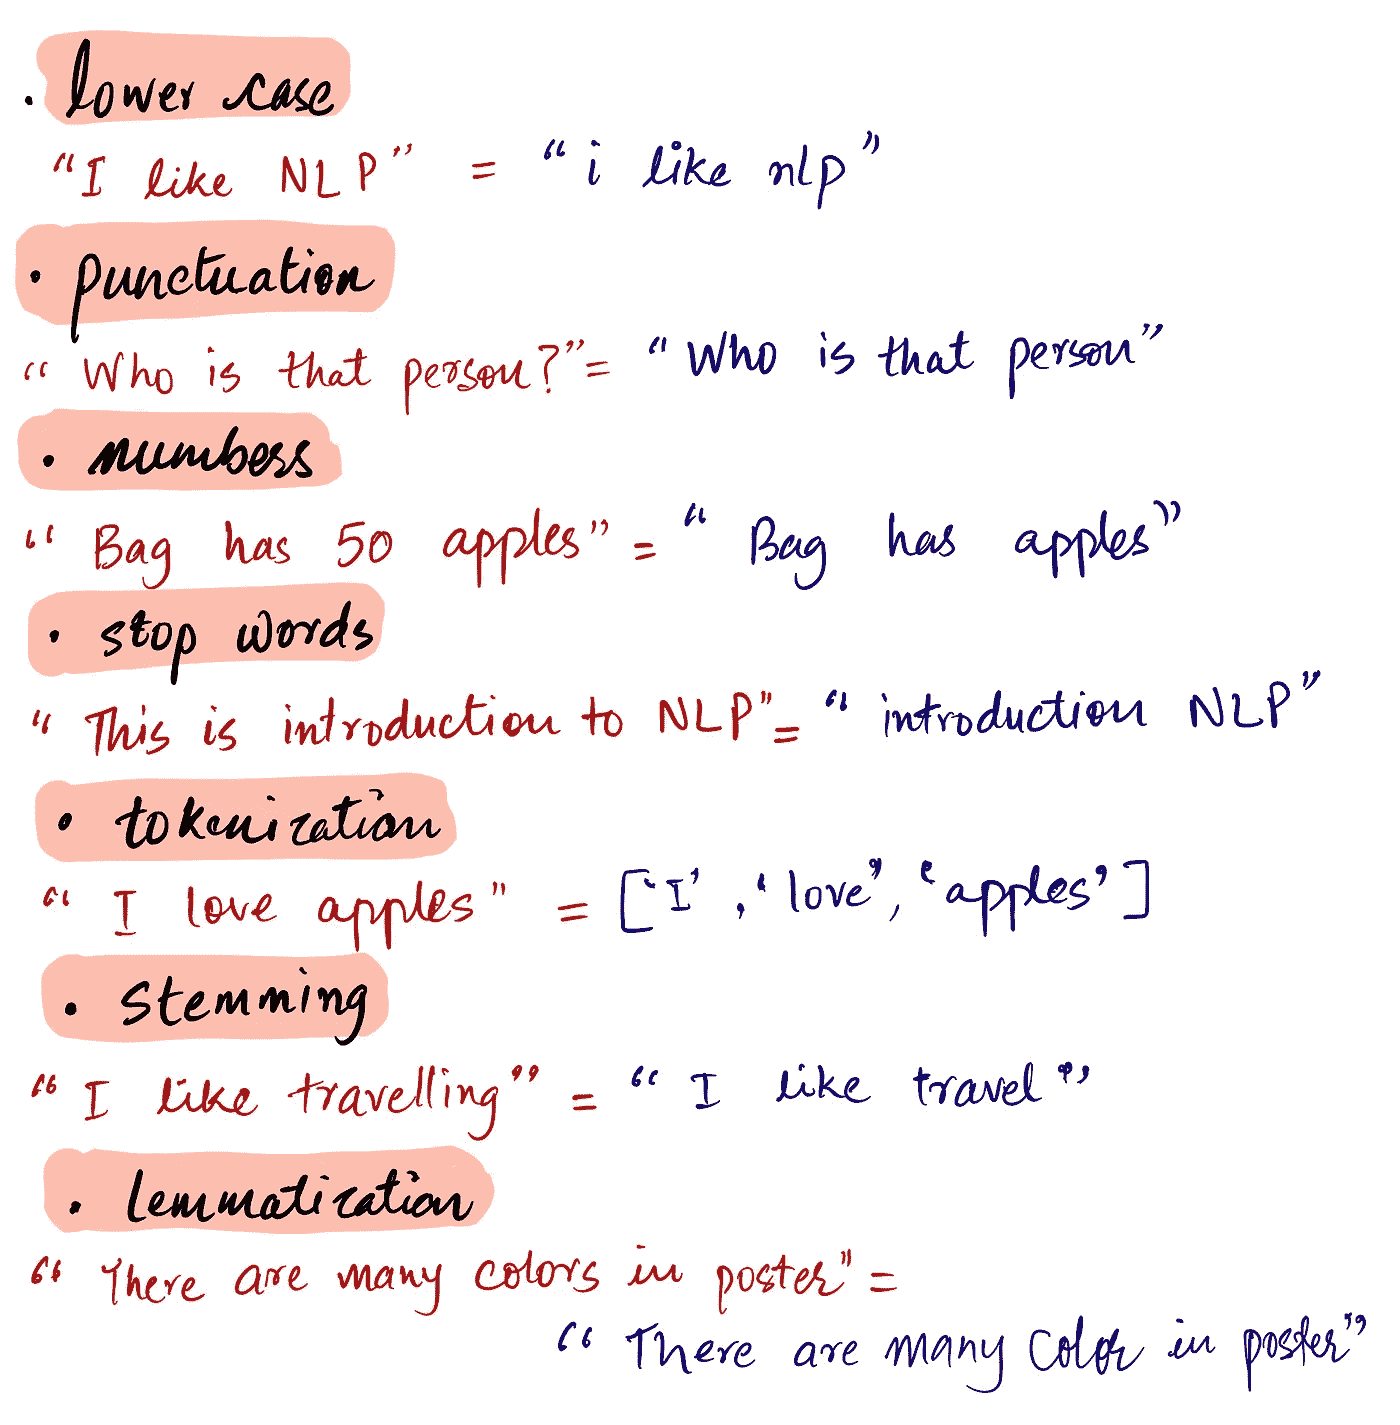 . lower case
"I like NLP" = "i like nlp"
. punctuation
"Who is that person?" = "Who is that person"
. numbers
"Bag has 50 apples" = "Bag has apples"
. stop words
"This is introduction to NLP" = "introduction NLP"
. tokenization
"I love apples" = ['I', 'love', 'apples']
. stemming
"I like travelling" = "I like travel"
. lemmatization
"There are many colors in poster" =
"There are many color in poster"